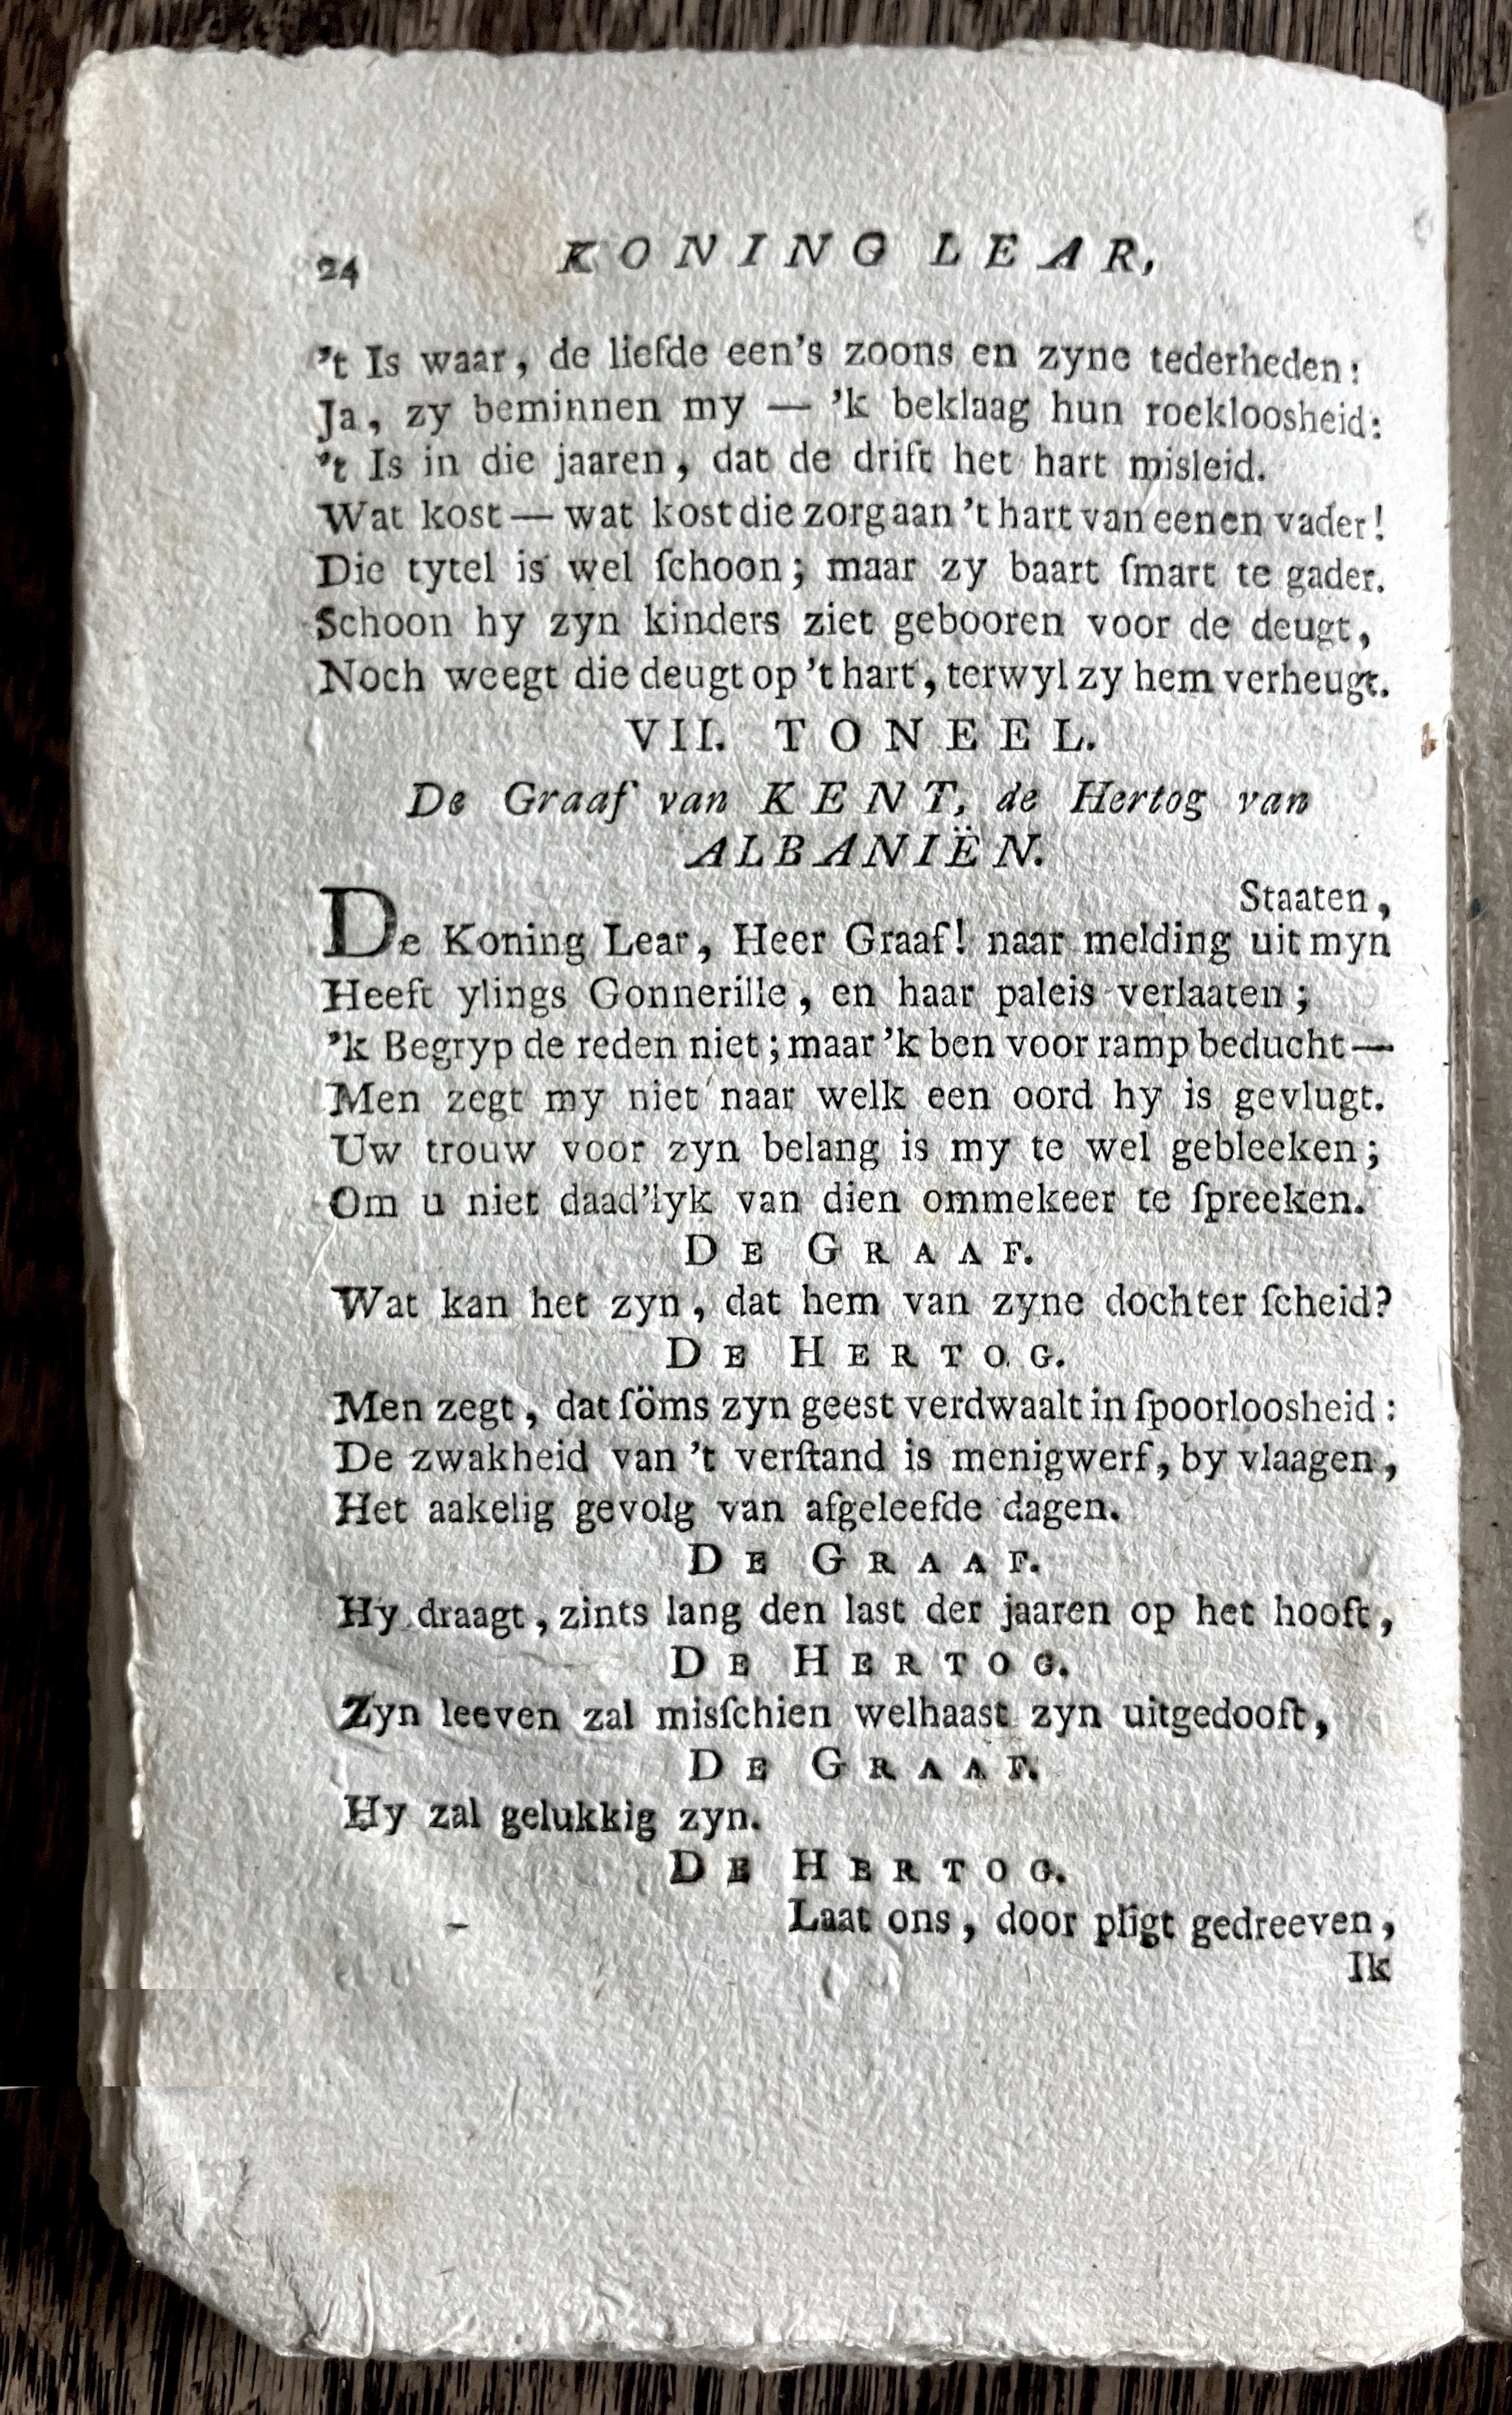 24 KONING LEAR,
’t Is waar, de liefde een’s zoons en zyne tederheden:
Ja, zy beminnen my — ’k beklaag hun roekloosheid:
’t Is in die jaaren, dat de drift het hart misleid.
Wat kost — wat kost die zorg aan ’t hart van eenen vader!
Die tytel is wel ſchoon; maar zy baart ſmart te gader.
Schoon hy zyn kinders ziet gebooren voor de deugt,
Noch weegt die deugt op ’t hart, terwyl zy hem verheugt.
VII. TONEEL.
De Graaf van KENT, de Hertog van
ALBANIËN.
Staaten,
De Koning Lear, Heer Graaf! naar melding uit myn
Heeft ylings Gonnerille, en haar paleis verlaaten;
’k Begryp de reden niet; maar ’k ben voor ramp beducht—
Men zegt my niet naar welk een oord hy is gevlugt.
Uw trouw voor zyn belang is my te wel gebleeken;
Om u niet daad’lyk van dien ommekeer te ſpreeken.
DE GRAAF.
Wat kan het zyn, dat hem van zyne dochter ſcheid?
DE HERTOG.
Men zegt, dat ſöms zyn geest verdwaalt in ſpoorloosheid:
De zwakheid van ’t verſtand is menigwerf, by vlaagen,
Het aakelig gevolg van afgeleefde dagen.
DE GRAAF.
Hy draagt, zints lang den last der jaaren op het hooft,
DE HERTOG.
Zyn leeven zal misſchien welhaast zyn uitgedooft,
DE GRAAF.
Hy zal gelukkig zyn.
DE HERTOG.
Laat ons, door pligt gedreeven,
Ik